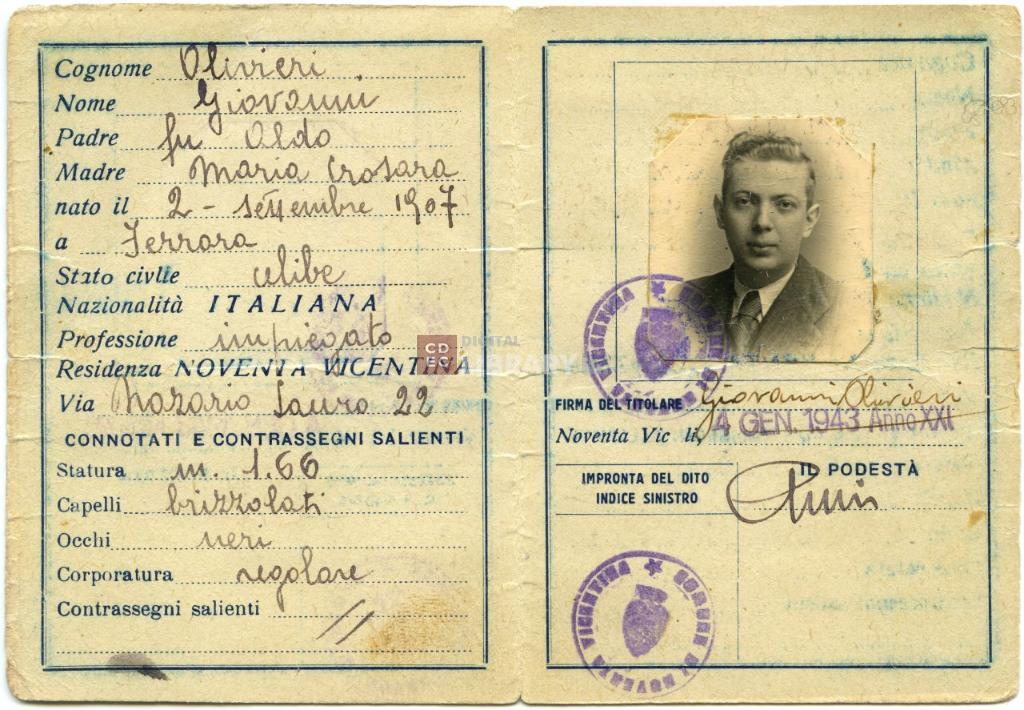 Cognome Olivieri
Nome Giovanni
Padre fu Aldo
Madre Maria Crosara
nato il 2 - settembre 1907
a Ferrara
Stato civile celibe
Nazionalità ITALIANA
Professione impiegato
Residenza NOVENTA VICENTINA
Via Nazario Sauro 22
CONNOTATI E CONTRASSEGNI SALIENTI
Statura m. 1.66
Capelli brizzolati
Occhi neri
Corporatura regolare
Contrassegni salienti //
CDEC DIGITAL LIBRARY
COMUNE DI NOVENTA VICENTINA
FIRMA DEL TITOLARE Giovanni Olivieri
Noventa Vic li, 4 GEN. 1943 Anno XXI
IMPRONTA DEL DITO
INDICE SINISTRO
IL PODESTÀ
COMUNE DI NOVENTA VICENTINA